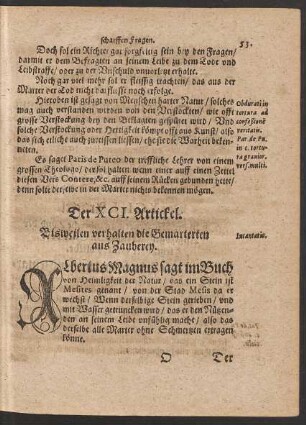 scharffen Fragen. 53.
Doch sol ein Richter gar sorgfeltig sein bey den Fragen/
darmit er dem Befragten an seinem Leibe zu dem Tode vnd
Leibstraffe/ oder zu der Vnschuld vnuorletzt erhalte.
Noch gar viel mehr sol er fleissig trachten/ das aus der
Marter der Tod nicht daraus noch erfolge.
Hieroben ist gesagt von Menschen harter Natur/ solches
mag auch verstanden werden von den Verstockten/ wie offt
grosse Verstockung bey den Beklagten gespürt wird/ Vnd
solche Verstockung oder Hertigkeit kömpt offt aus Kunst/ also
das sich etliche auch zureissen liessen/ ehe sie die Warheit beken-
neten.
Obdurati in
tortura ad
confessionē
veritatis.
Par. de Pu.
in c. tortu-
ra grauior.
vers. multi.
Es saget Paris de Puteo der treffliche Lehrer von einem
grossen Theologo/ der sol halten wenn einer auff einen Zettel
diesen Vers Contere, &c. auff seinem Rücken gebunden hette/
denn solte derselbe in der Marter nichts bekennen mögen.
Der XCI. Artickel.
Bisweilen verhalten die Gemarterten
aus Zauberey.
Incantatio.
Albertus Magnus sagt im Buch
von Heimligkeit der Natur/ das ein Stein ist
Mesites genant/ von der Stad Mesis da er
wechst/ Wenn derselbige Stein gerieben/ vnd
mit Wasser getruncken wird/ das er den Nützen-
den an seinem Leibe vnfühlig macht/ also das
derselbe alle Marter ohne Schmertzen ertragen
könne.
O Der